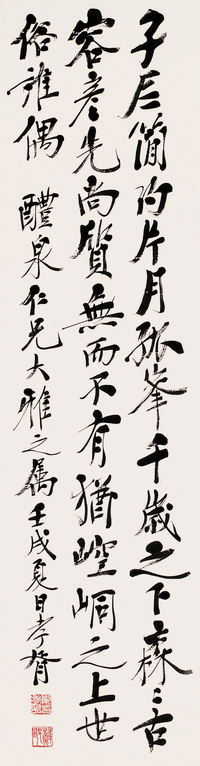 子尼簡片月孤峯千歲之下森〻古
容彥先尚質無而不有猶崆峒之上世
俗誰偶 醴泉仁兄大雅之屬壬戌夏日孝胥